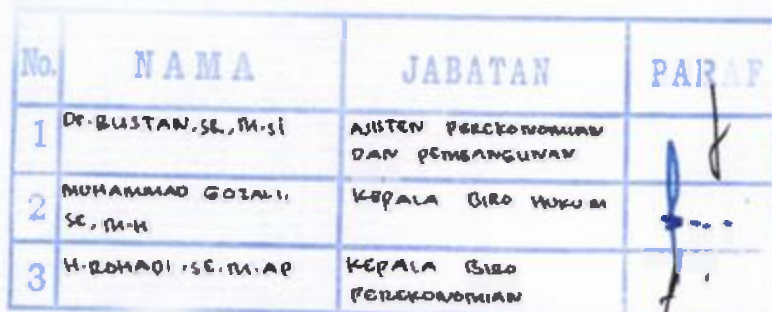 No. NAMA JABATAN PARAF
1 Dr. BUSTAN, SE, M.Si ASISTEN PEREKONOMIAN
DAN PEMBANGUNAN
2 MUHAMMAD GOZALI, KEPALA BIRO HUKUM
SE, M.H
3 H. ROHADI, SE, M.AP KEPALA BIRO
PEREKONOMIAN